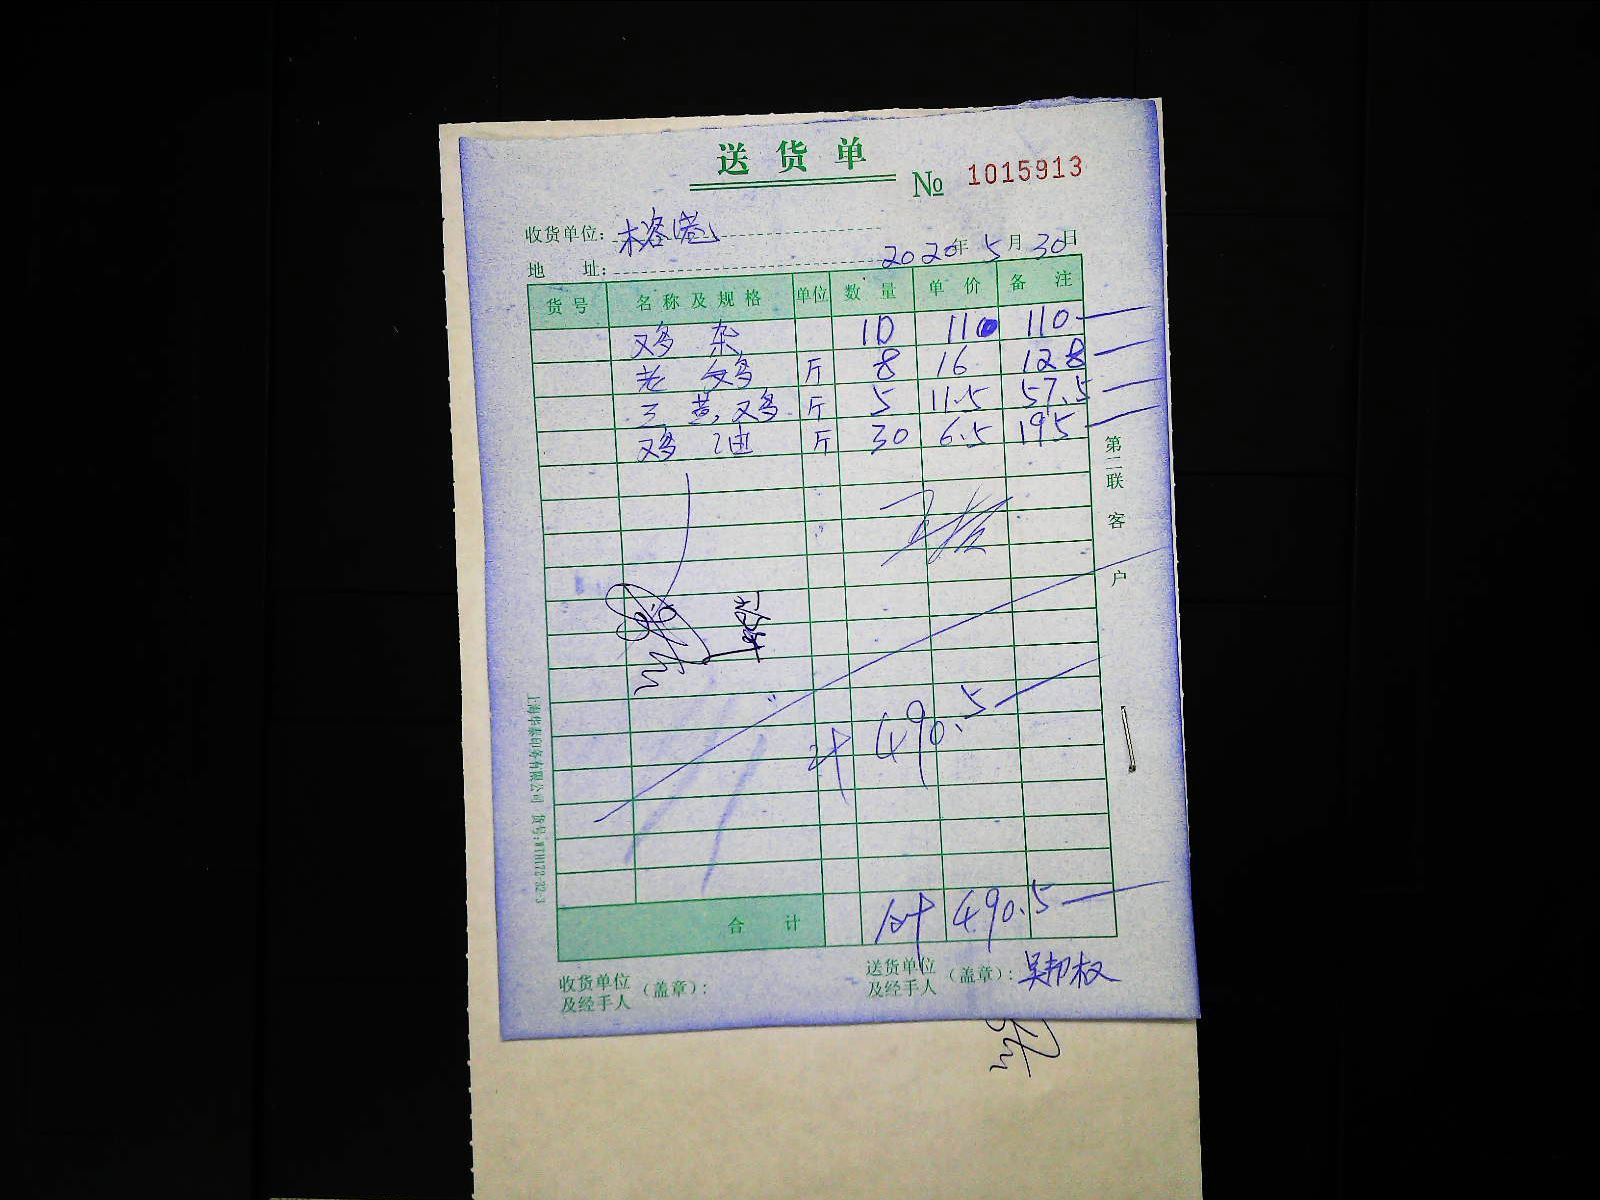 送货单
№ 1015913
收货单位: 榕港
地 址:
2020年5月30日
货号 名称及规格 单位 数量 单价 备注
鸡 杂 10 11 110
老 鸡 斤 8 16 128
三黄鸡 斤 5 11.5 57.5
鸡油 斤 30 6.5 195
计 490.5
合 计 计 490.5
收货单位及经手人 (盖章):
送货单位及经手人 (盖章): 吴邦权
第二联 客户
上海华泰印务有限公司 货号:WTH172-32-3